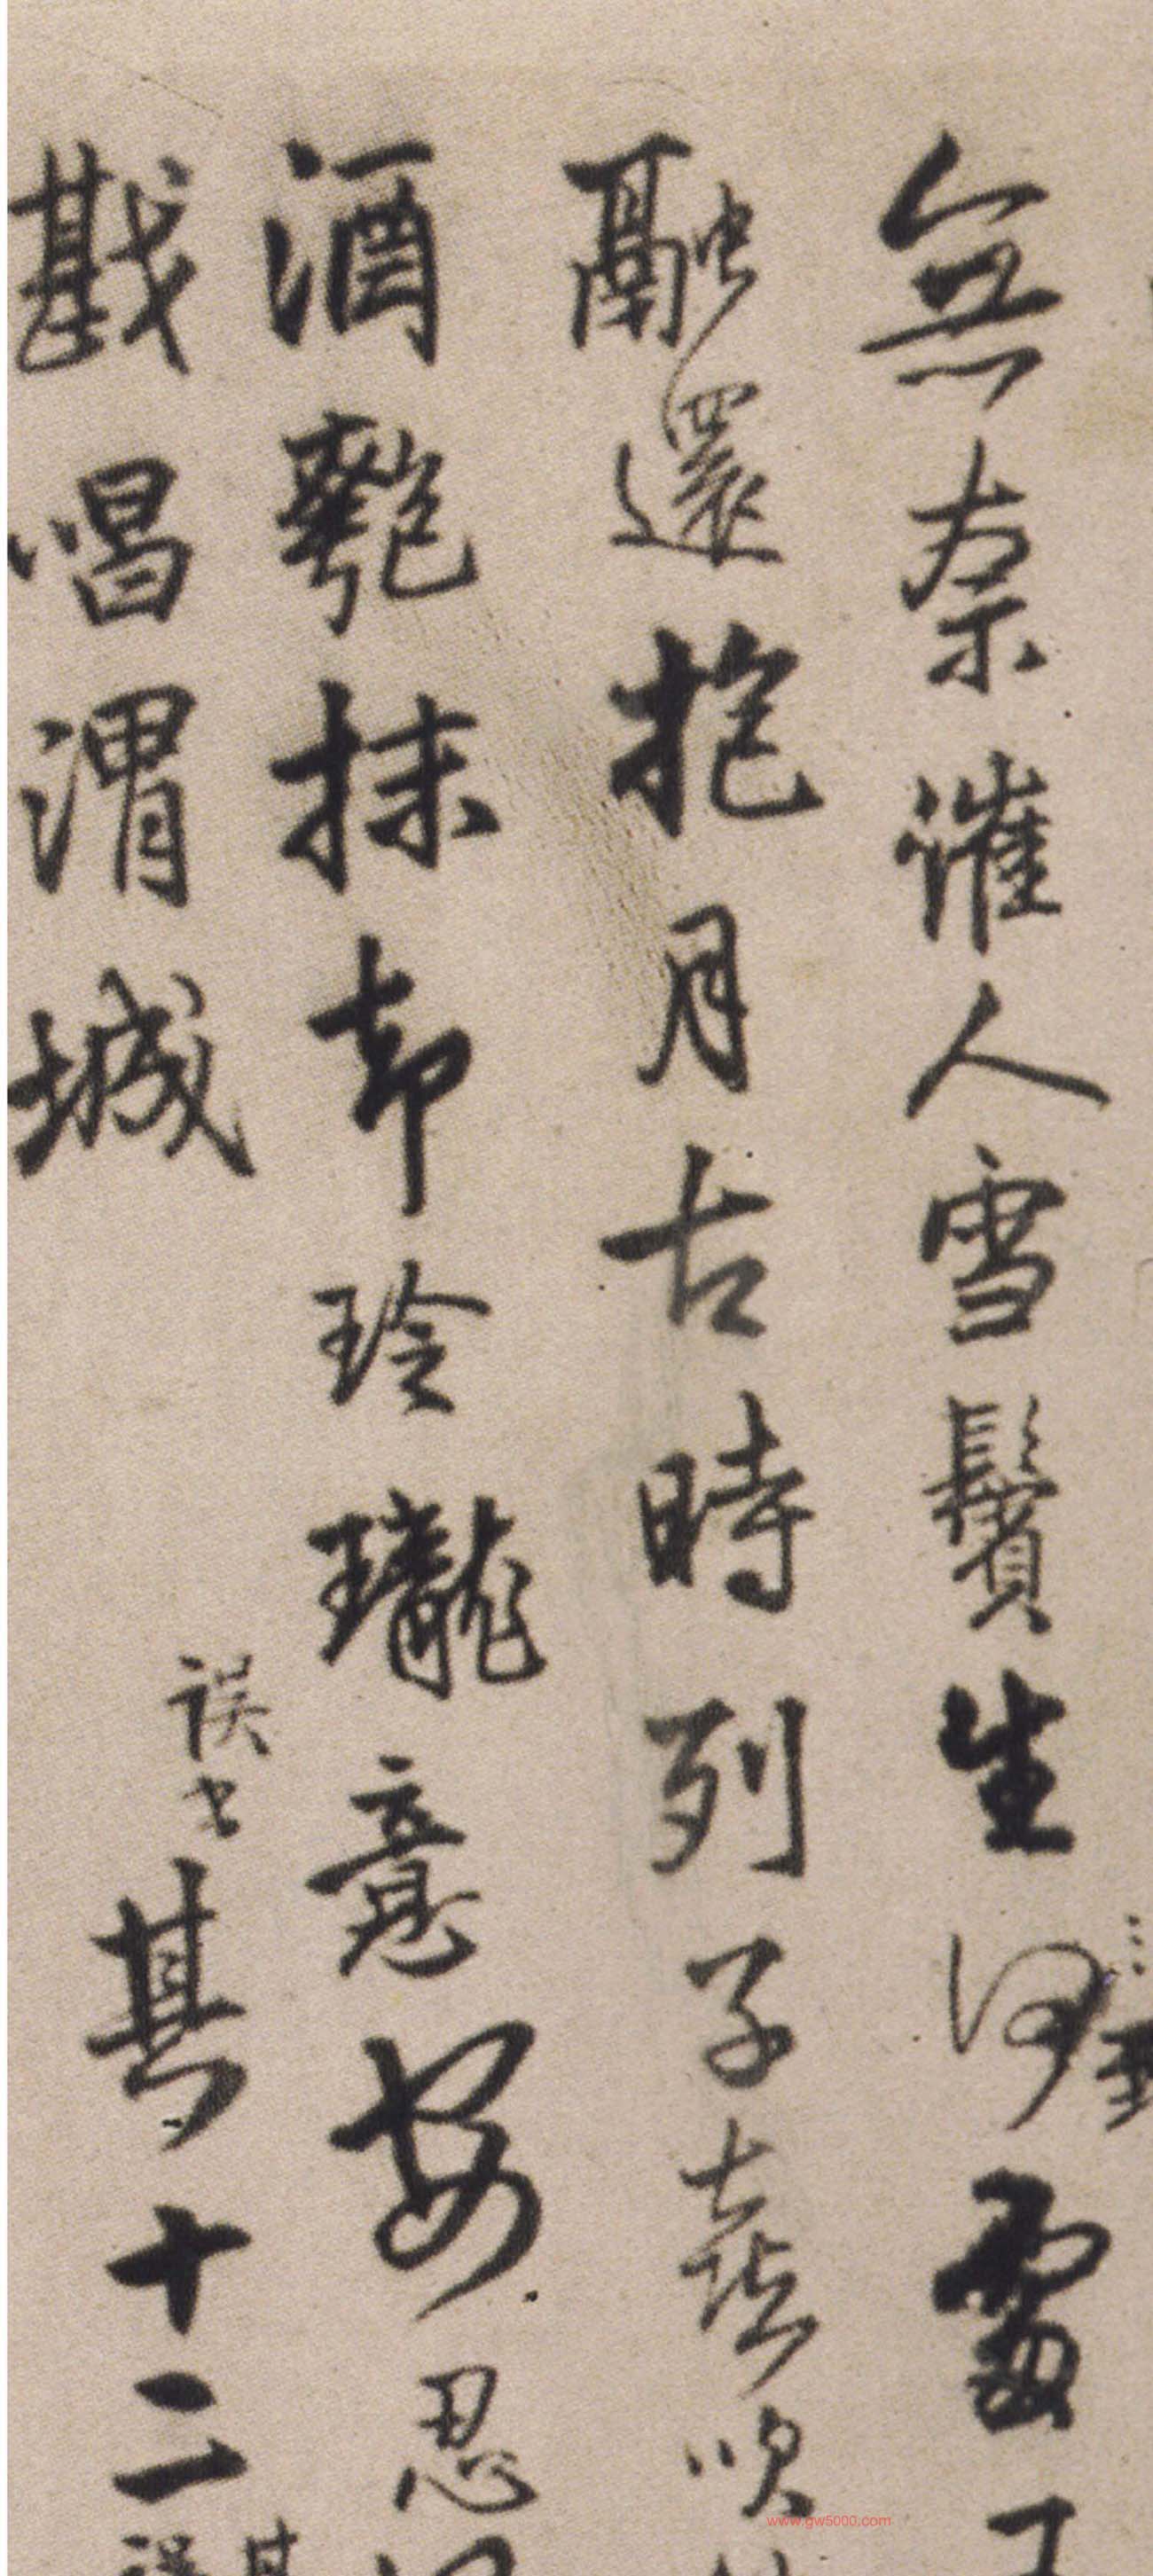 無奈催人雪鬢生何
融還抱月古時列子喜吹
酒甕抹却玲瓏意安忍
戡唱渭城
誤書
其十二
www.gw5000.com